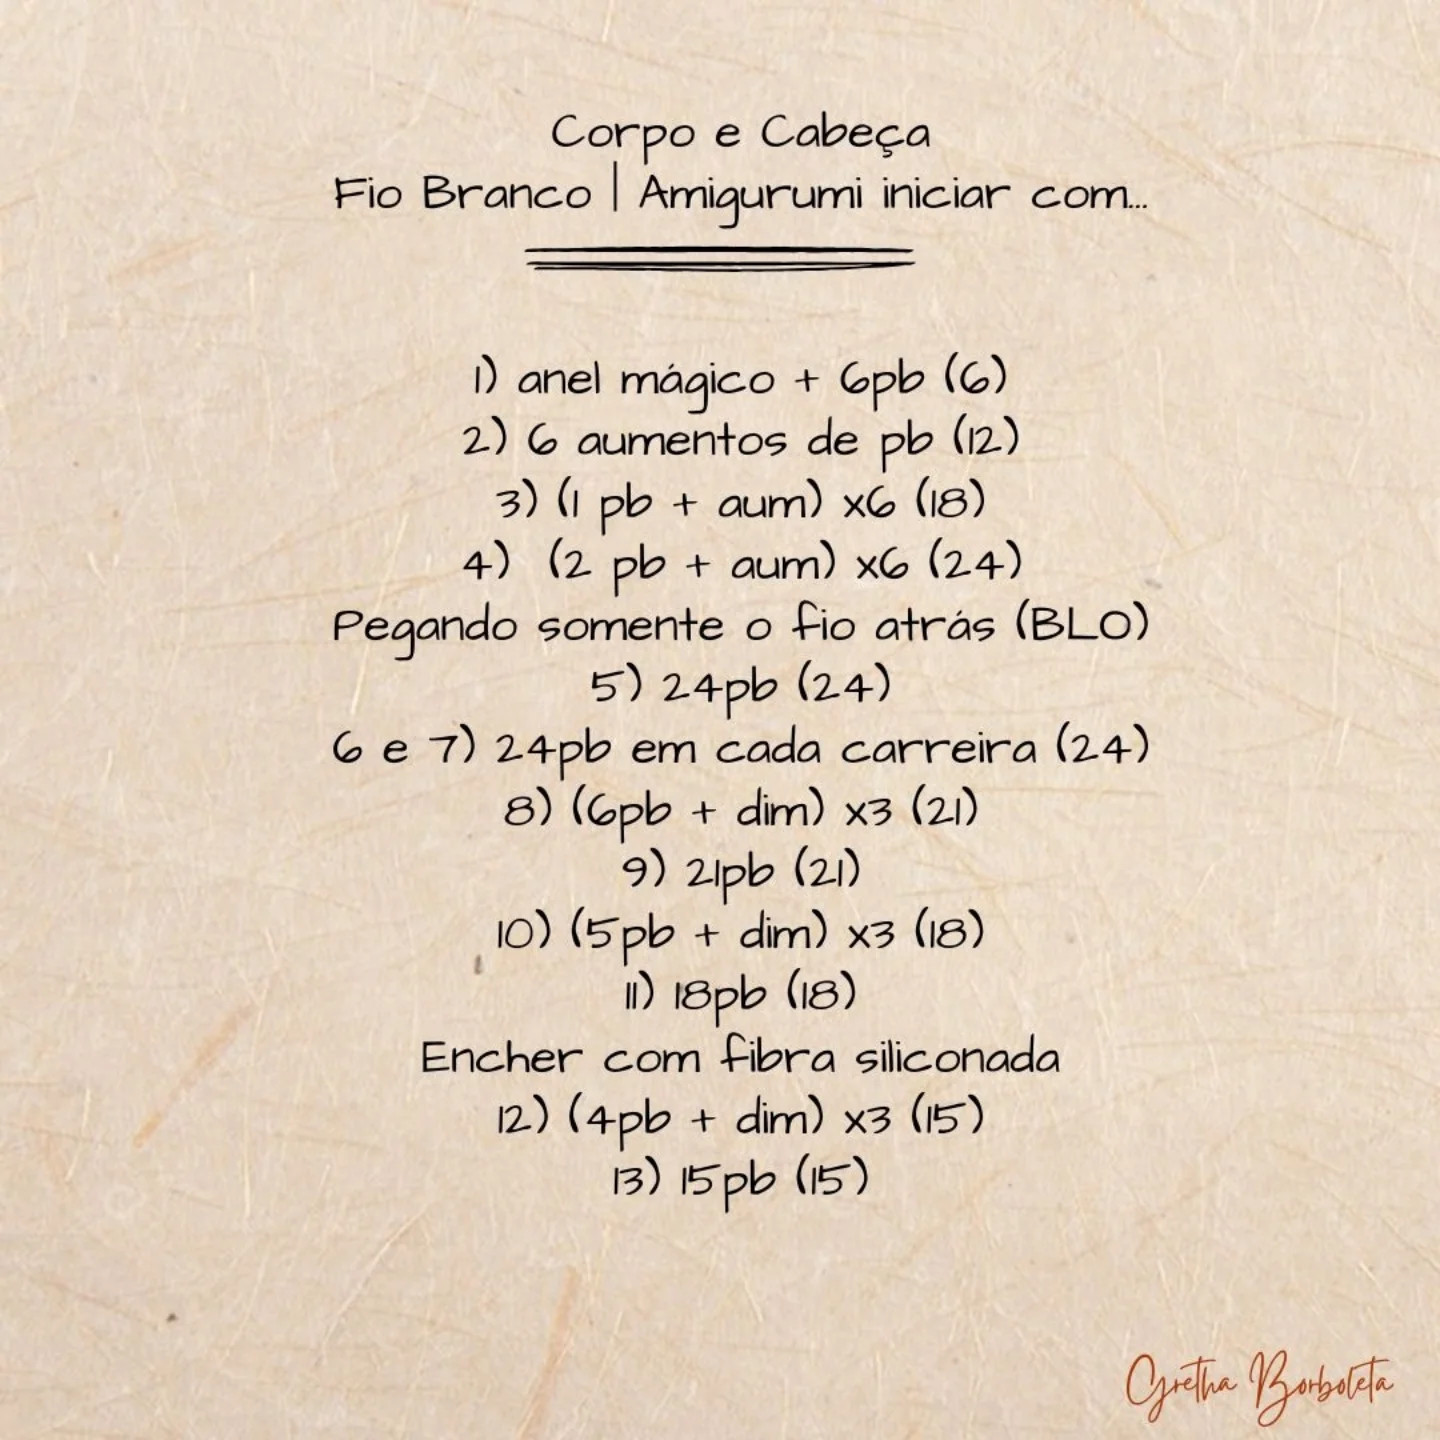 Corpo e Cabeça
Fio Branco | Amigurumi iniciar com...
1) anel mágico + 6pb (6)
2) 6 aumentos de pb (12)
3) (1 pb + aum) x6 (18)
4) (2 pb + aum) x6 (24)
Pegando somente o fio atrás (BLO)
5) 24pb (24)
6 e 7) 24pb em cada carreira (24)
8) (6pb + dim) x3 (21)
9) 21pb (21)
10) (5pb + dim) x3 (18)
11) 18pb (18)
Encher com fibra siliconada
12) (4pb + dim) x3 (15)
13) 15pb (15)
Gretha Borboleta